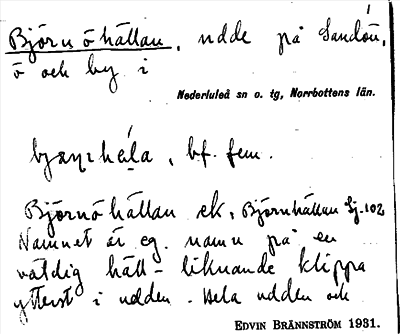 Björnöhällan, udde på Sandön,
ö och by i
Nederluleå sn o. tg, Norrbottens län.
, bf. fem.
Björnöhällan ek, Björnhällan Sj. 102
Namnet är eg. namn på en
väldig häll-liknande klippa
ytterst i udden. Hela udden och
EDVIN BRÄNNSTRÖM 1931.